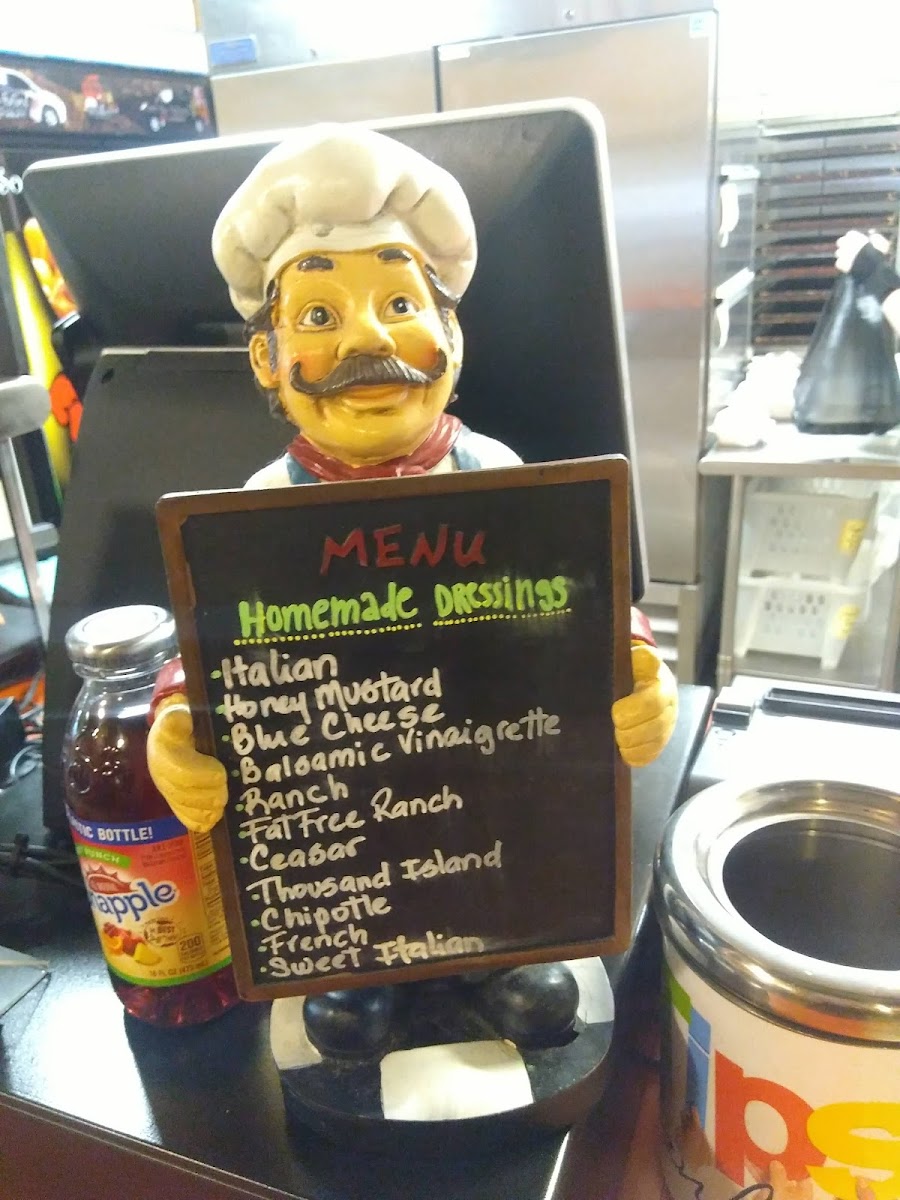 MENU
Homemade Dressings
·Italian
·Honey Mustard
·Blue Cheese
·Balsamic Vinaigrette
·Ranch
·Fat Free Ranch
·Ceasar
·Thousand Island
·Chipotle
·French
·Sweet Italian
BOTTLE!
PUNCH
apple
200
16 FL OZ (473 mL)
ps